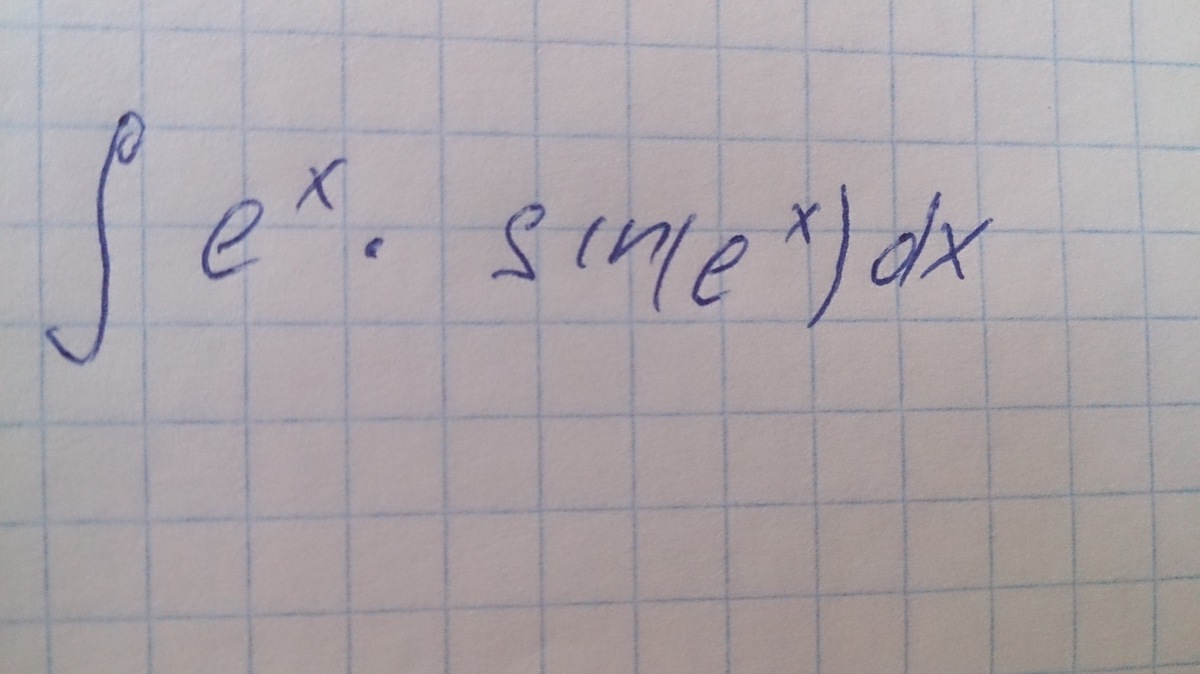 ∫ e^x · sin(e^x) dx